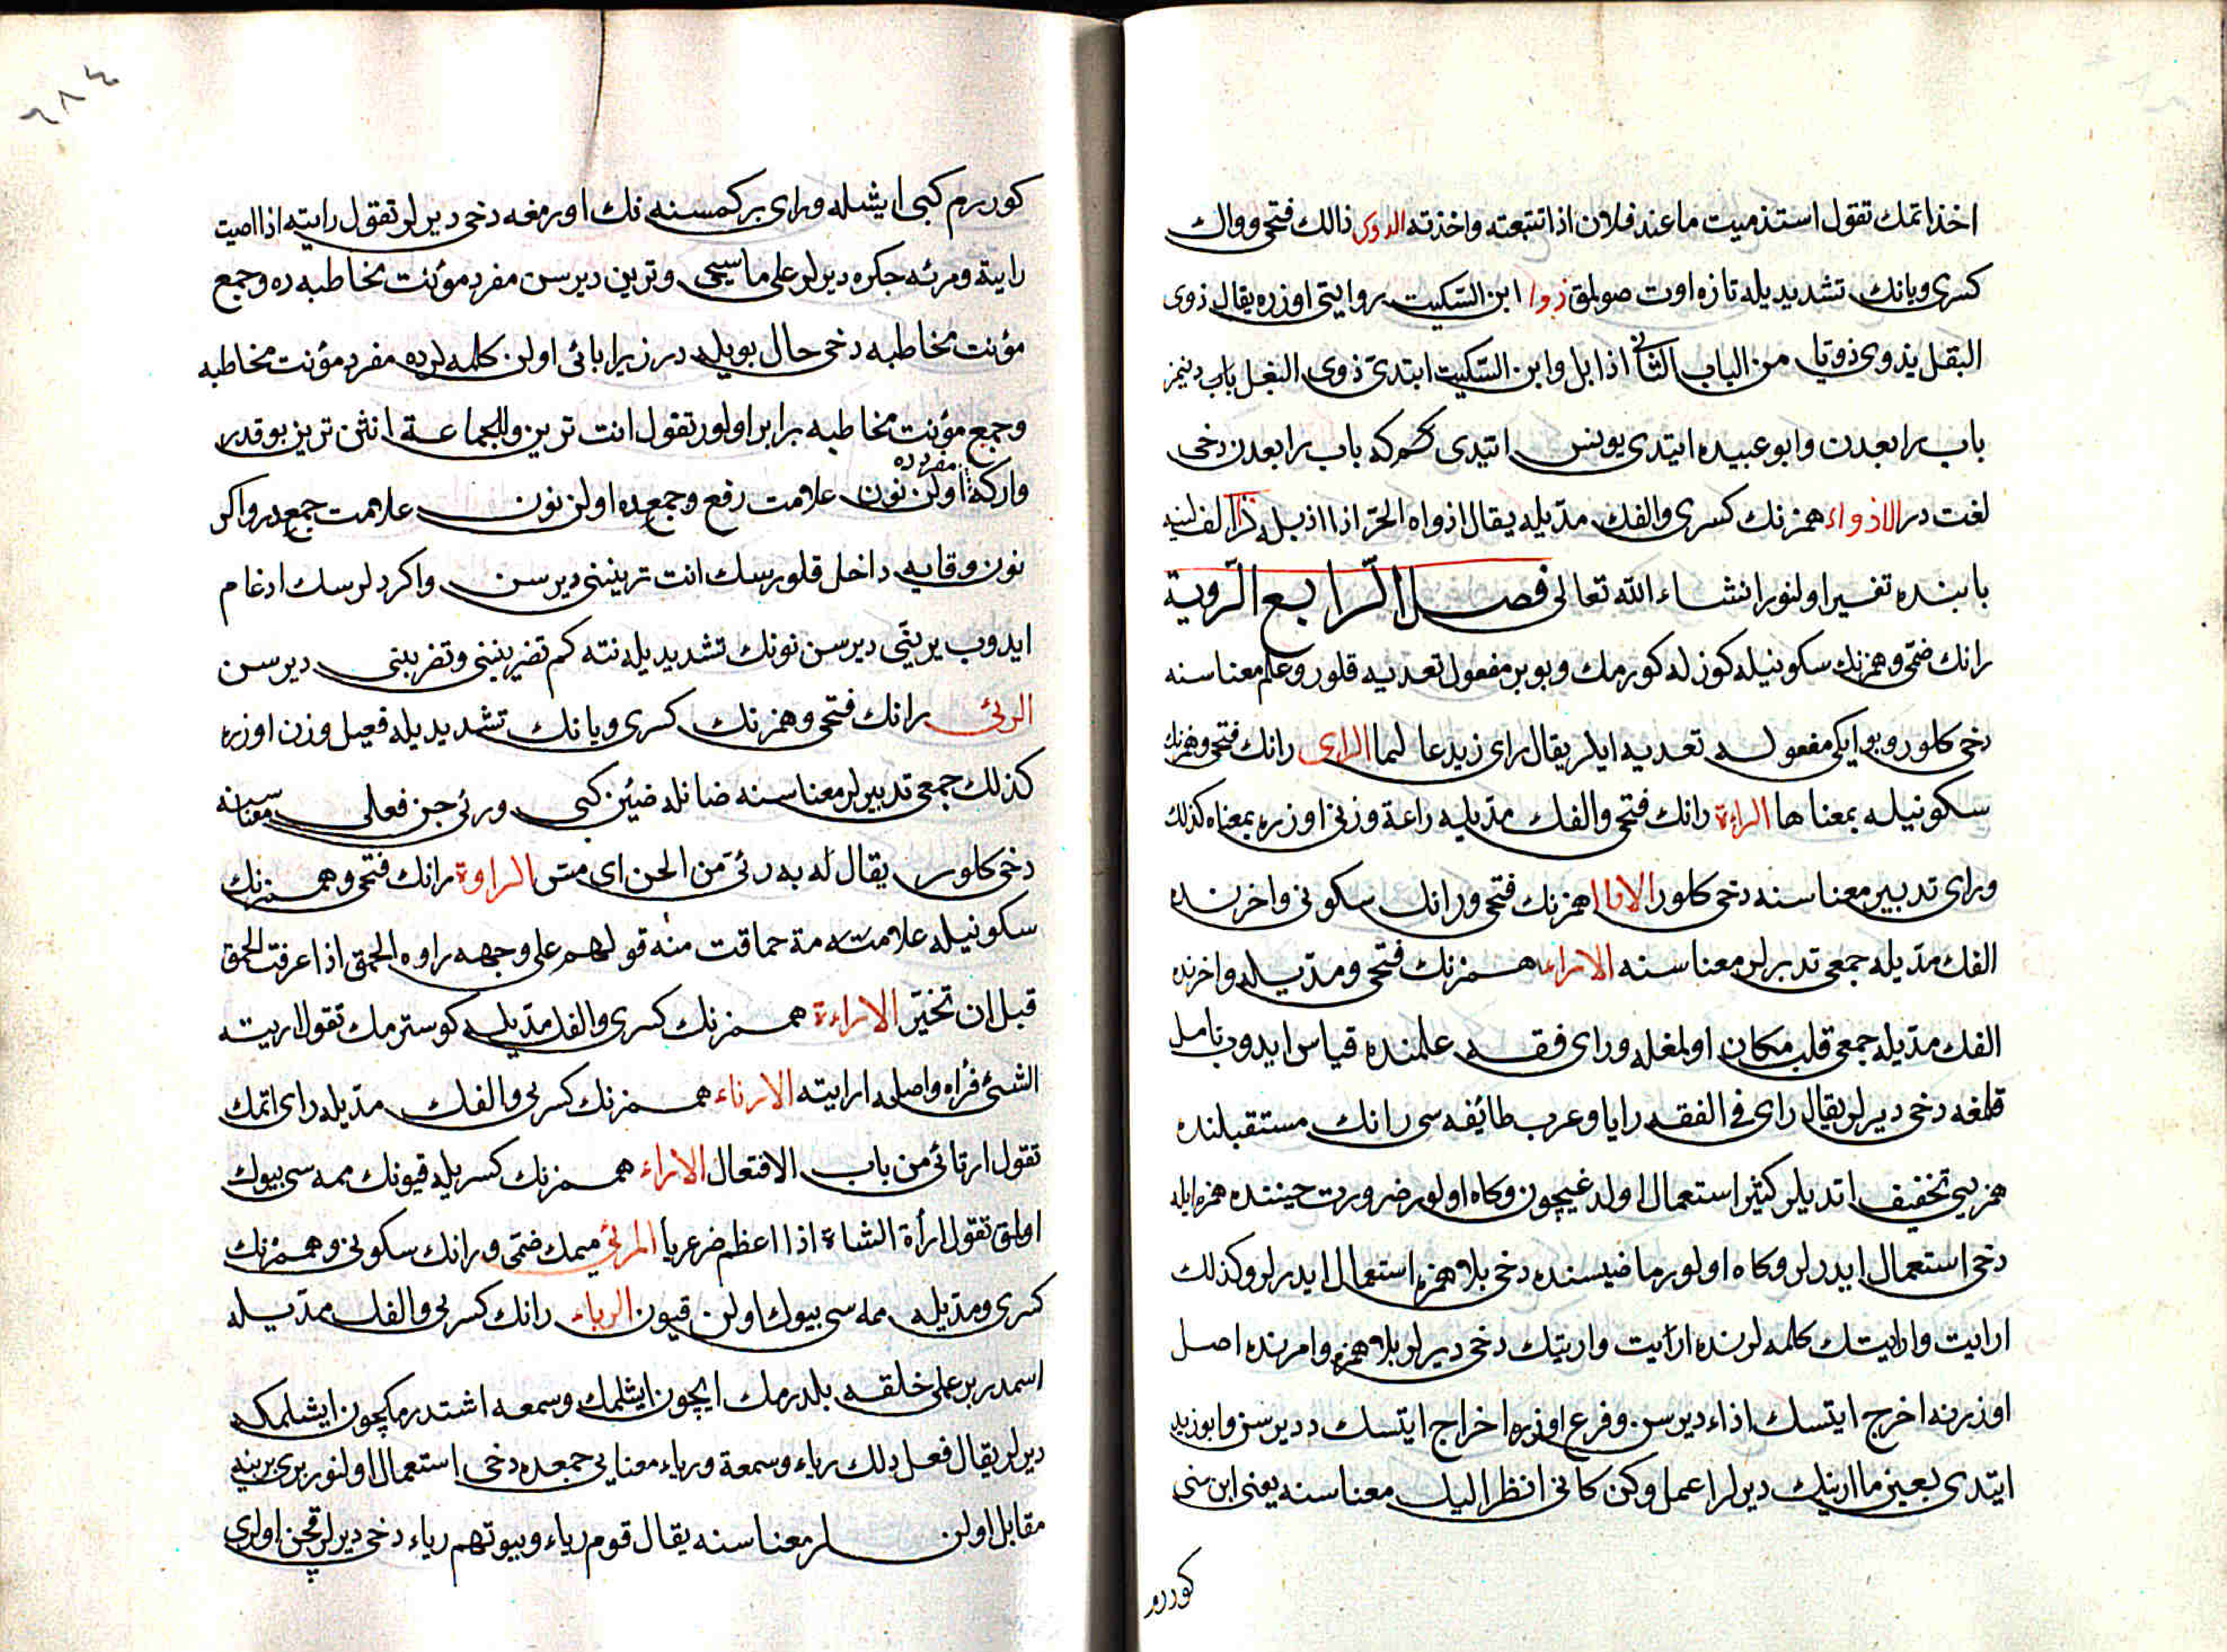 اخذ اتمك تقول استذميت ما عند فلان اذا تتبعته واخذته الذوى ذالك فتحى وواك
كسرى ويانك تشديديله تازه اوت صولمق ذوا ابن السّكيت روايتى اوزره يقال ذوى
البقل يذوى ذويا من الباب الثّانى اذا بل وابن السّكيت ايتدى ذوى البغل باب دنيمز
باب رابعدن وابو عبيده ايتدى يونس ايتدى كه باب رابعدن دخى
لغت در الاذواء همزنك كسرى والفك مدّيله يقال اذواه الحرّ اذا اذبله ذا الف لنيه
بابنده تفسير اولنور انشاء الله تعالى فصل الرّابع الرّوية
رانك ضمّى وهمزنك سكونيله كوزله كورمك وبو بر مفعول تعديه قلور وعلم معناسنه
دخى كلور وبو ايكى مفعوله تعديه ايلر يقال راى زيد عالما الراى رانك فتحى وهمزنك
سكونيله بمعناها الراءة رانك فتحى والفك مدّيله راعة وزنى اوزره بمعناه كذلك
وراى تدبير معناسنه دخى كلور الاراا همزنك فتحى ورانك سكونى واخرنده
الفك مدّيله جمعى تدبرلر معناسنه الاراء همزنك فتحى ومدّيله واخرنده
الفك مدّيله جمعى قلب مكان اولمغله وراى فقه علمنده قياس ايدوب تامل
قلمغه دخى ديرلر يقال راى فى الفقه رايا وعرب طائفه سى رانك مستقبلنده
همزيى تخفيف اتديلر كثير استعمال اولدغيچون وكاه اولور ضرورت حيننده همزه ايله
دخى استعمال ايدرلر وكاه اولور ماضيسنده دخى بلا همزه استعمال ايدرلر وكذلك
ارايت وارايتك كلمه لرنده ارايت واريتك دخى ديرلر بلا همزه وامرنده اصل
اوزرنه اخرج ايتسك اذاء ديرسن وفرع اوزره اخراج ايتسك د ديرسن وابو زيد
ايتدى بعين ما ارينك ديرلر اعمل وكن كانى انظر اليك معناسنه يعنى ابن سنى
كوررم
كوررم كبى ايشله وراى بر كمسنه نك اورمغه دخى ديرلر تقول رايته اذا اصبت
رايته ومرئه جكره ديرلر على ما سيجى وترين ديرسن مفرد مؤنث مخاطبه ده وجمع
مؤنث مخاطبه دخى حال بويله در زيرا يائى اولن كلمه لرده مفرد مؤنث مخاطبه
وجمع مؤنث مخاطبه برابر اولور تقول انت ترين وللجماعة انتن ترين بو قدر
واركه مفردده اولن نون علامت رفع وجمعده اولن نون علامت جمعدر واكر
نون وقايه داخل قلورسك انت ترينى ديرسن واكر دلرسك ادغام
ايدوب يرينّى ديرسن نونك تشديديله نته كم تضربيننى وتضربينى ديرسن
الرئى رانك فتحى وهمزنك كسرى ويانك تشديديله فعيل وزن اوزره
كذلك جمعى تدبيرلر معناسنه ضانله ضئين كبى ورئى جن فعالى معناسنه
دخى كلور يقال له به رئى من الجن اى مسّ الراوة رانك فتحى وهمزنك
سكونيله علامته مة حماقت منه قولهم على وجهه راوه الحمق اذا عرفت الحمق
قبل ان تخبّر الاراءة همزنك كسرى والفك مدّيله كوسترمك تقول اريته
الشئ فراه واصله ارايته الارتاء همزنك كسرى والفك مدّيله راى اتمك
تقول ارتائى من باب الافتعال الاراء همزنك كسريله قيونك ممه سى بيوك
اولمق تقول ارأة الشاة اذا اعظم ضرعريا المرئى ميمك ضمّى ورانك سكونى وهمزنك
كسرى ومدّيله ممه سى بيوك اولن قيون الرياء رانك كسرى والفك ممدّيله
اسمدر بر عملى خلقه بلدرمك ايچون ايشلمك وسمعه اشتدرمكچون ايشلمك
ديرلر يقال فعل ذلك رياء وسمعة ورياء معنايى جمعده دخى استعمال اولنور برى برينه
مقابل اولن لر معناسنه يقال قوم رياء وبيوتهم رياء دخى ديرلر قچن اولرى